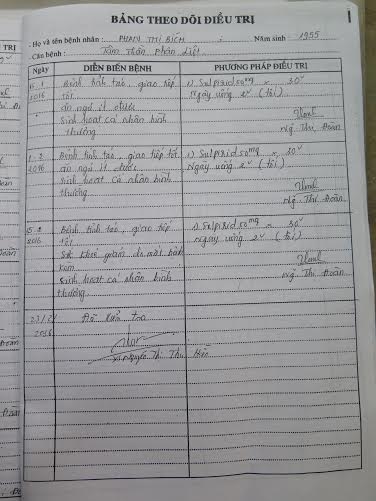 BẢNG THEO DÕI ĐIỀU TRỊ
Họ và tên bệnh nhân : PHAN THỊ BIÊN Năm sinh : 1955
Căn bệnh : Tâm thần phân liệt
Ngày DIỄN BIẾN BỆNH PHƯƠNG PHÁP ĐIỀU TRỊ
15 1 2016
Bệnh tỉnh táo, giao tiếp
tốt
ăn ngủ ít được
Sinh hoạt cá nhân bình
thường
1) Sulpirid 50mg x 30v
Ngày uống 2v (tối)
Ng. Thị Đoàn
1 2 2016
Bệnh tỉnh táo, giao tiếp tốt
ăn ngủ ít được
Sinh hoạt cá nhân bình
thường
1) Sulpirid 50mg x 30v
Ngày uống 2v (tối)
Ng. Thị Đoàn
15 2 2016
Bệnh tỉnh táo, giao tiếp
tốt
Sức khoẻ giảm do mắt
kém
Sinh hoạt cá nhân bình
thường
1) Sulpirid 50mg x 30v
Ngày uống 2v (tối)
Ng. Thị Đoàn
23/2/
2016
Đã kiểm tra
Nguyễn Thị Thu